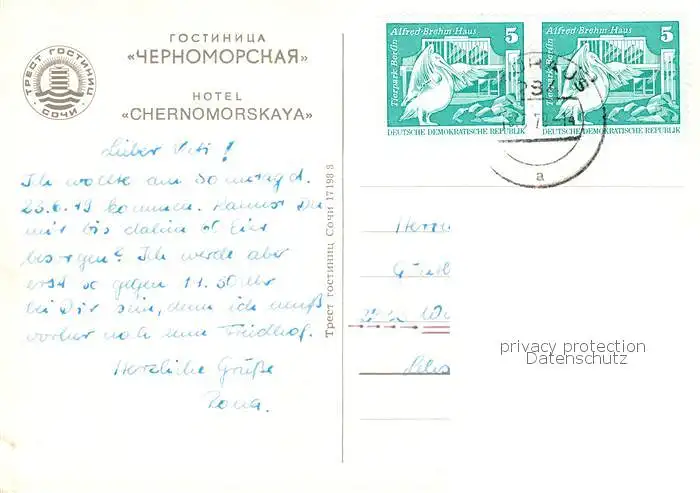 ГОСТИНИЦА
«ЧЕРНОМОРСКАЯ»
HOTEL
«CHERNOMORSKAYA»
ТРЕСТ ГОСТИНИЦ
СОЧИ
Alfred-Brehm-Haus
5
Tierpark Berlin
DEUTSCHE DEMOKRATISCHE REPUBLIK
Alfred-Brehm-Haus
5
Tierpark Berlin
DEUTSCHE DEMOKRATISCHE REPUBLIK
a
Lieber
Ich wollte am Sonntag d.
23.6.79 kommen. Kannst Du
mir bis dahin 50 Eier
besorgen? Ich werde aber
erst so gegen 11.30 Uhr
bei Dir sein, denn ich muß
vorher noch zum Friedhof.
Herzliche Grüße
Трест гостиниц Сочи 17198 8
Herrn
privacy protection
Datenschutz